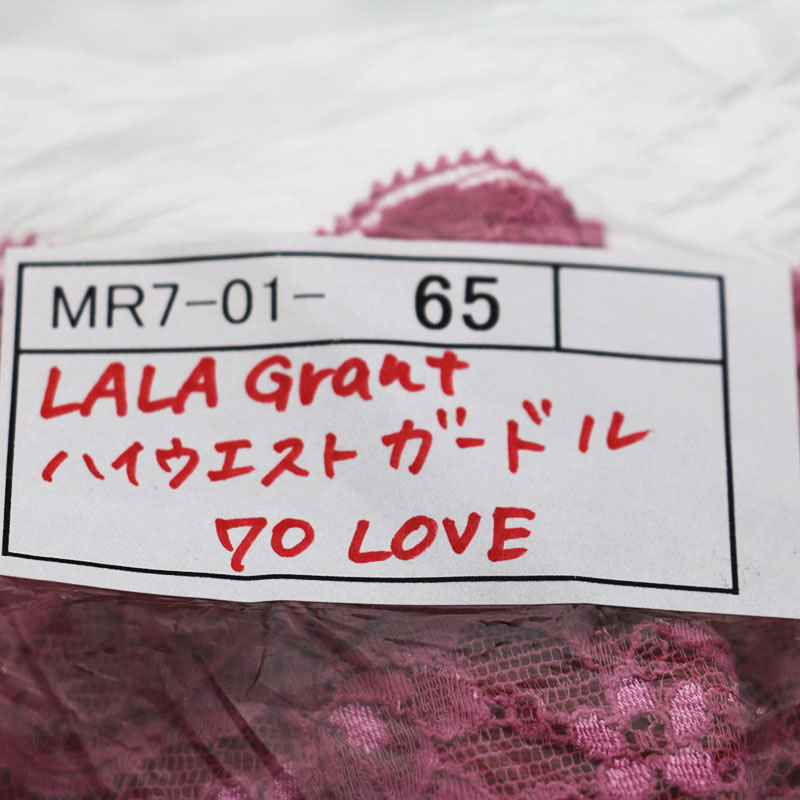 MR7-01- 65
LALA Grant
ハイウエストガードル
70 LOVE